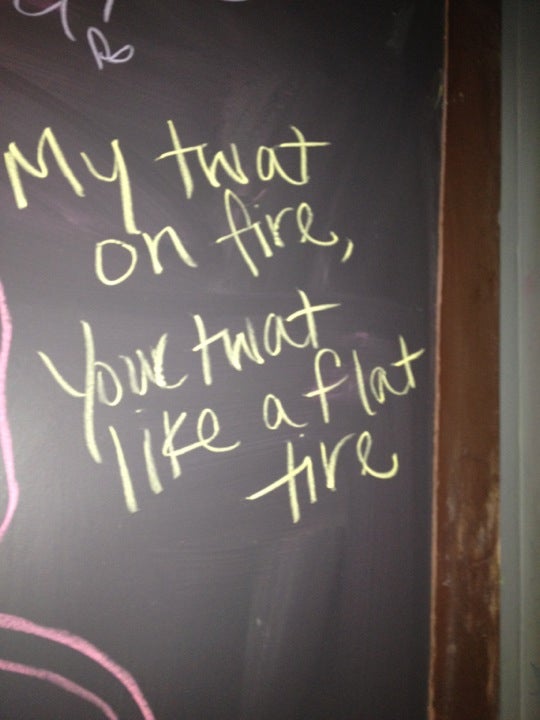 My twat
on fire,
Your twat
like a flat
tire